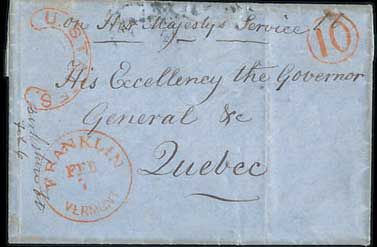 on Her Majesty's Service
10
U. ST
S
His Excellency the Governor
General &c
Quebec
FRANKLIN
FEB
VERMONT